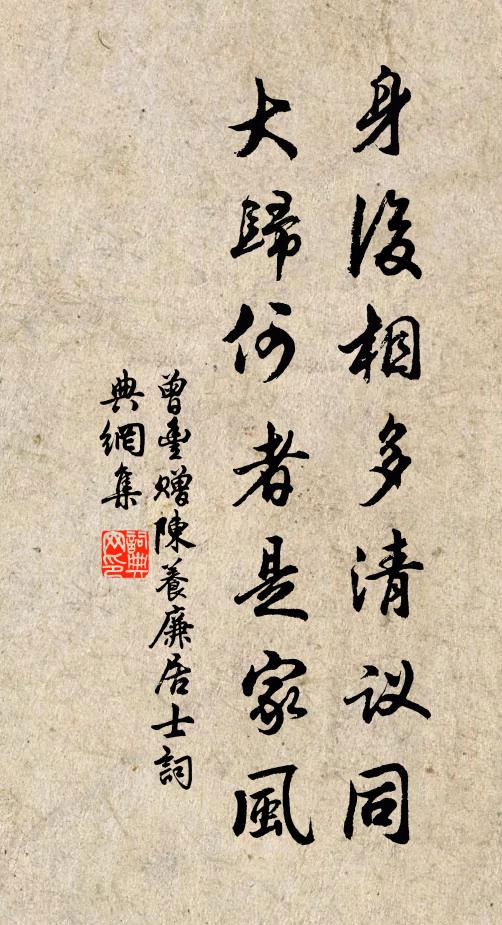 身後相多清议同
大歸何者是家風
曾豐赠陳養廉居士詞
典網集
詞典
网印